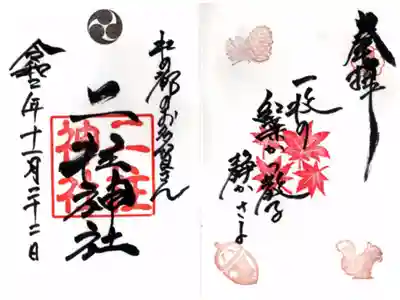 奉拝
一枚の
紅葉かつ散る
静かさよ
杜の都のお多賀さん
二柱神社
二柱神社
令和二年十一月二十二日